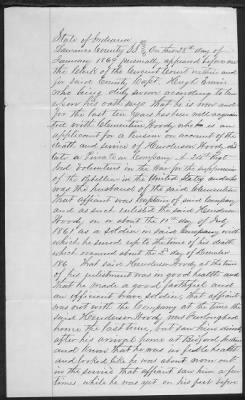 State of Indiana
Lawrence County SS On this 28th day of
January 1869 personally appeared before me
the Clerk of the Circuit Court within and
for said County Capt. Hugh Erwin
who being duly sworn according to law
upon his oath says that he is now and
for the last ten years has been well acquain
ted with Clementine Woody, who is an
applicant for a pension on account of the
death and service of Henderson Woody, de
late a Private in Company A 24th Regt
Ind Volunteers in the War for the suppression
of the Rebellion in the United States and who
was the husband of the said Clementine
That affiant was Captain of said Company
and as such enlisted the said Henderson
Woody, on or about the day of July
1861 as a soldier in said Company with
which he served up to the time of his death
which occurred about the 2d day of December
186 That said Henderson Woody at the time
of his enlistment was in good health and
that he made a good faithful and
an efficient soldier, that affiant
was not with the Company at the time the
said Henderson Woody, was Furloughed
home the last time, but saw him
after his arrival home at Bedford
and knew that he was in feeble health
and looked like he was about worn out
in the service that affiant saw him a few
times while he was yet on his feet before